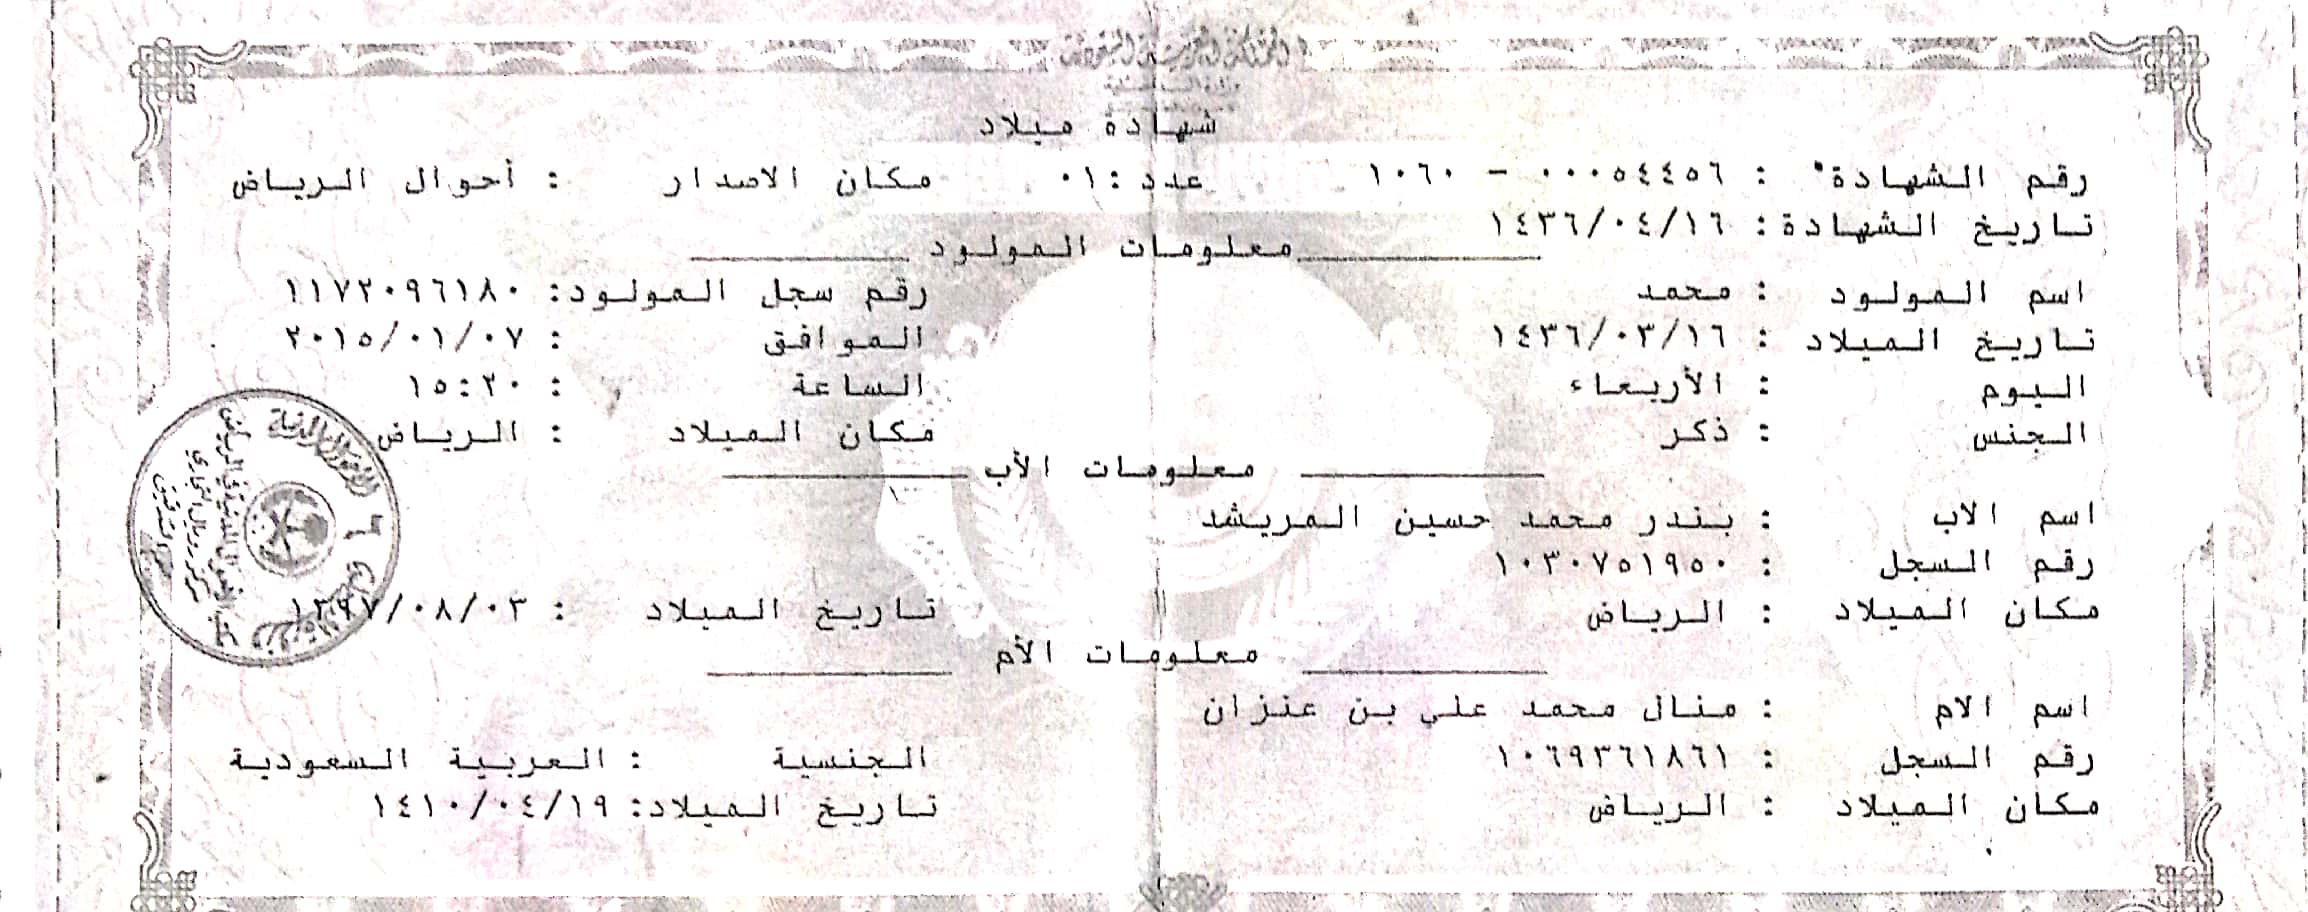 المملكة العربية السعودية
شهادة ميلاد
رقم الشهادة : ٠٠٠٥٤٤٥٦ - ١٠٦٠ عدد : ٠١ مكان الاصدار : أحوال الرياض
تاريخ الشهادة : ١٤٣٦/٠٤/١٦
معلومات المولود
اسم المولود : محمد رقم سجل المولود: ١١٧٢٠٩٦١٨٠
تاريخ الميلاد : ١٤٣٦/٠٣/١٦ الموافق : ٢٠١٥/٠١/٠٧
اليوم : الأربعاء الساعة : ١٥:٢٠
الجنس : ذكر مكان الميلاد : الرياض
معلومات الأب
اسم الاب : بندر محمد حسين المريشد
رقم السجل : ١٠٣٠٧٥١٩٥٠
مكان الميلاد : الرياض تاريخ الميلاد : ١٣٩٧/٠٨/٠٣
معلومات الأم
اسم الام : منال محمد علي بن عنزان
رقم السجل : ١٠٦٩٣٦١٨٦١ الجنسية : العربية السعودية
مكان الميلاد : الرياض تاريخ الميلاد: ١٤١٠/٠٤/١٩
الأحوال المدنية
٦